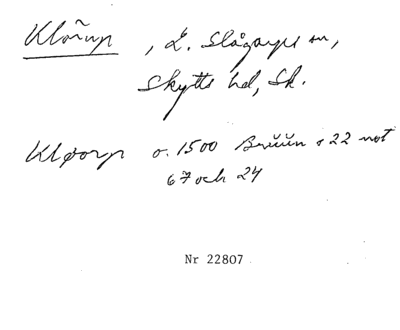 Klörup, L. Slågarps sn,
Skytts hd, Sk.
Klporp o. 1500 Bruun s 22 not
67 och 24
Nr 22807